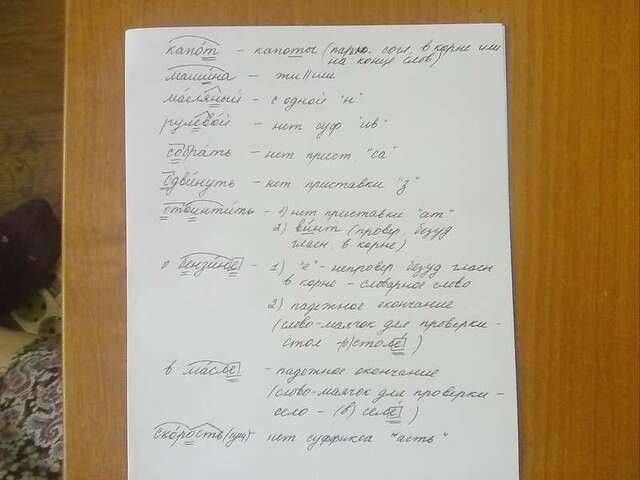 капот - капоты (парн. согл. в корне или
на конце слов)
машина - жи||ши
масляный - с одной "н"
рулевой - нет суф "ив"
собрать - нет прист. "са"
сдвинуть - нет приставки "з"
отвинтить - 1) нет приставки "ат"
2) винт (провер. безуд
гласн. в корне)
о бензине - 1) "е" - непровер безуд гласн
в корне - словарное слово
2) падежное окончание
(слово-маячок для проверки -
стол - (в) столе)
в масле - падежное окончание
(слово-маячок для проверки -
село - (в) селе)
скорость (сущ) - нет суффикса "асть"